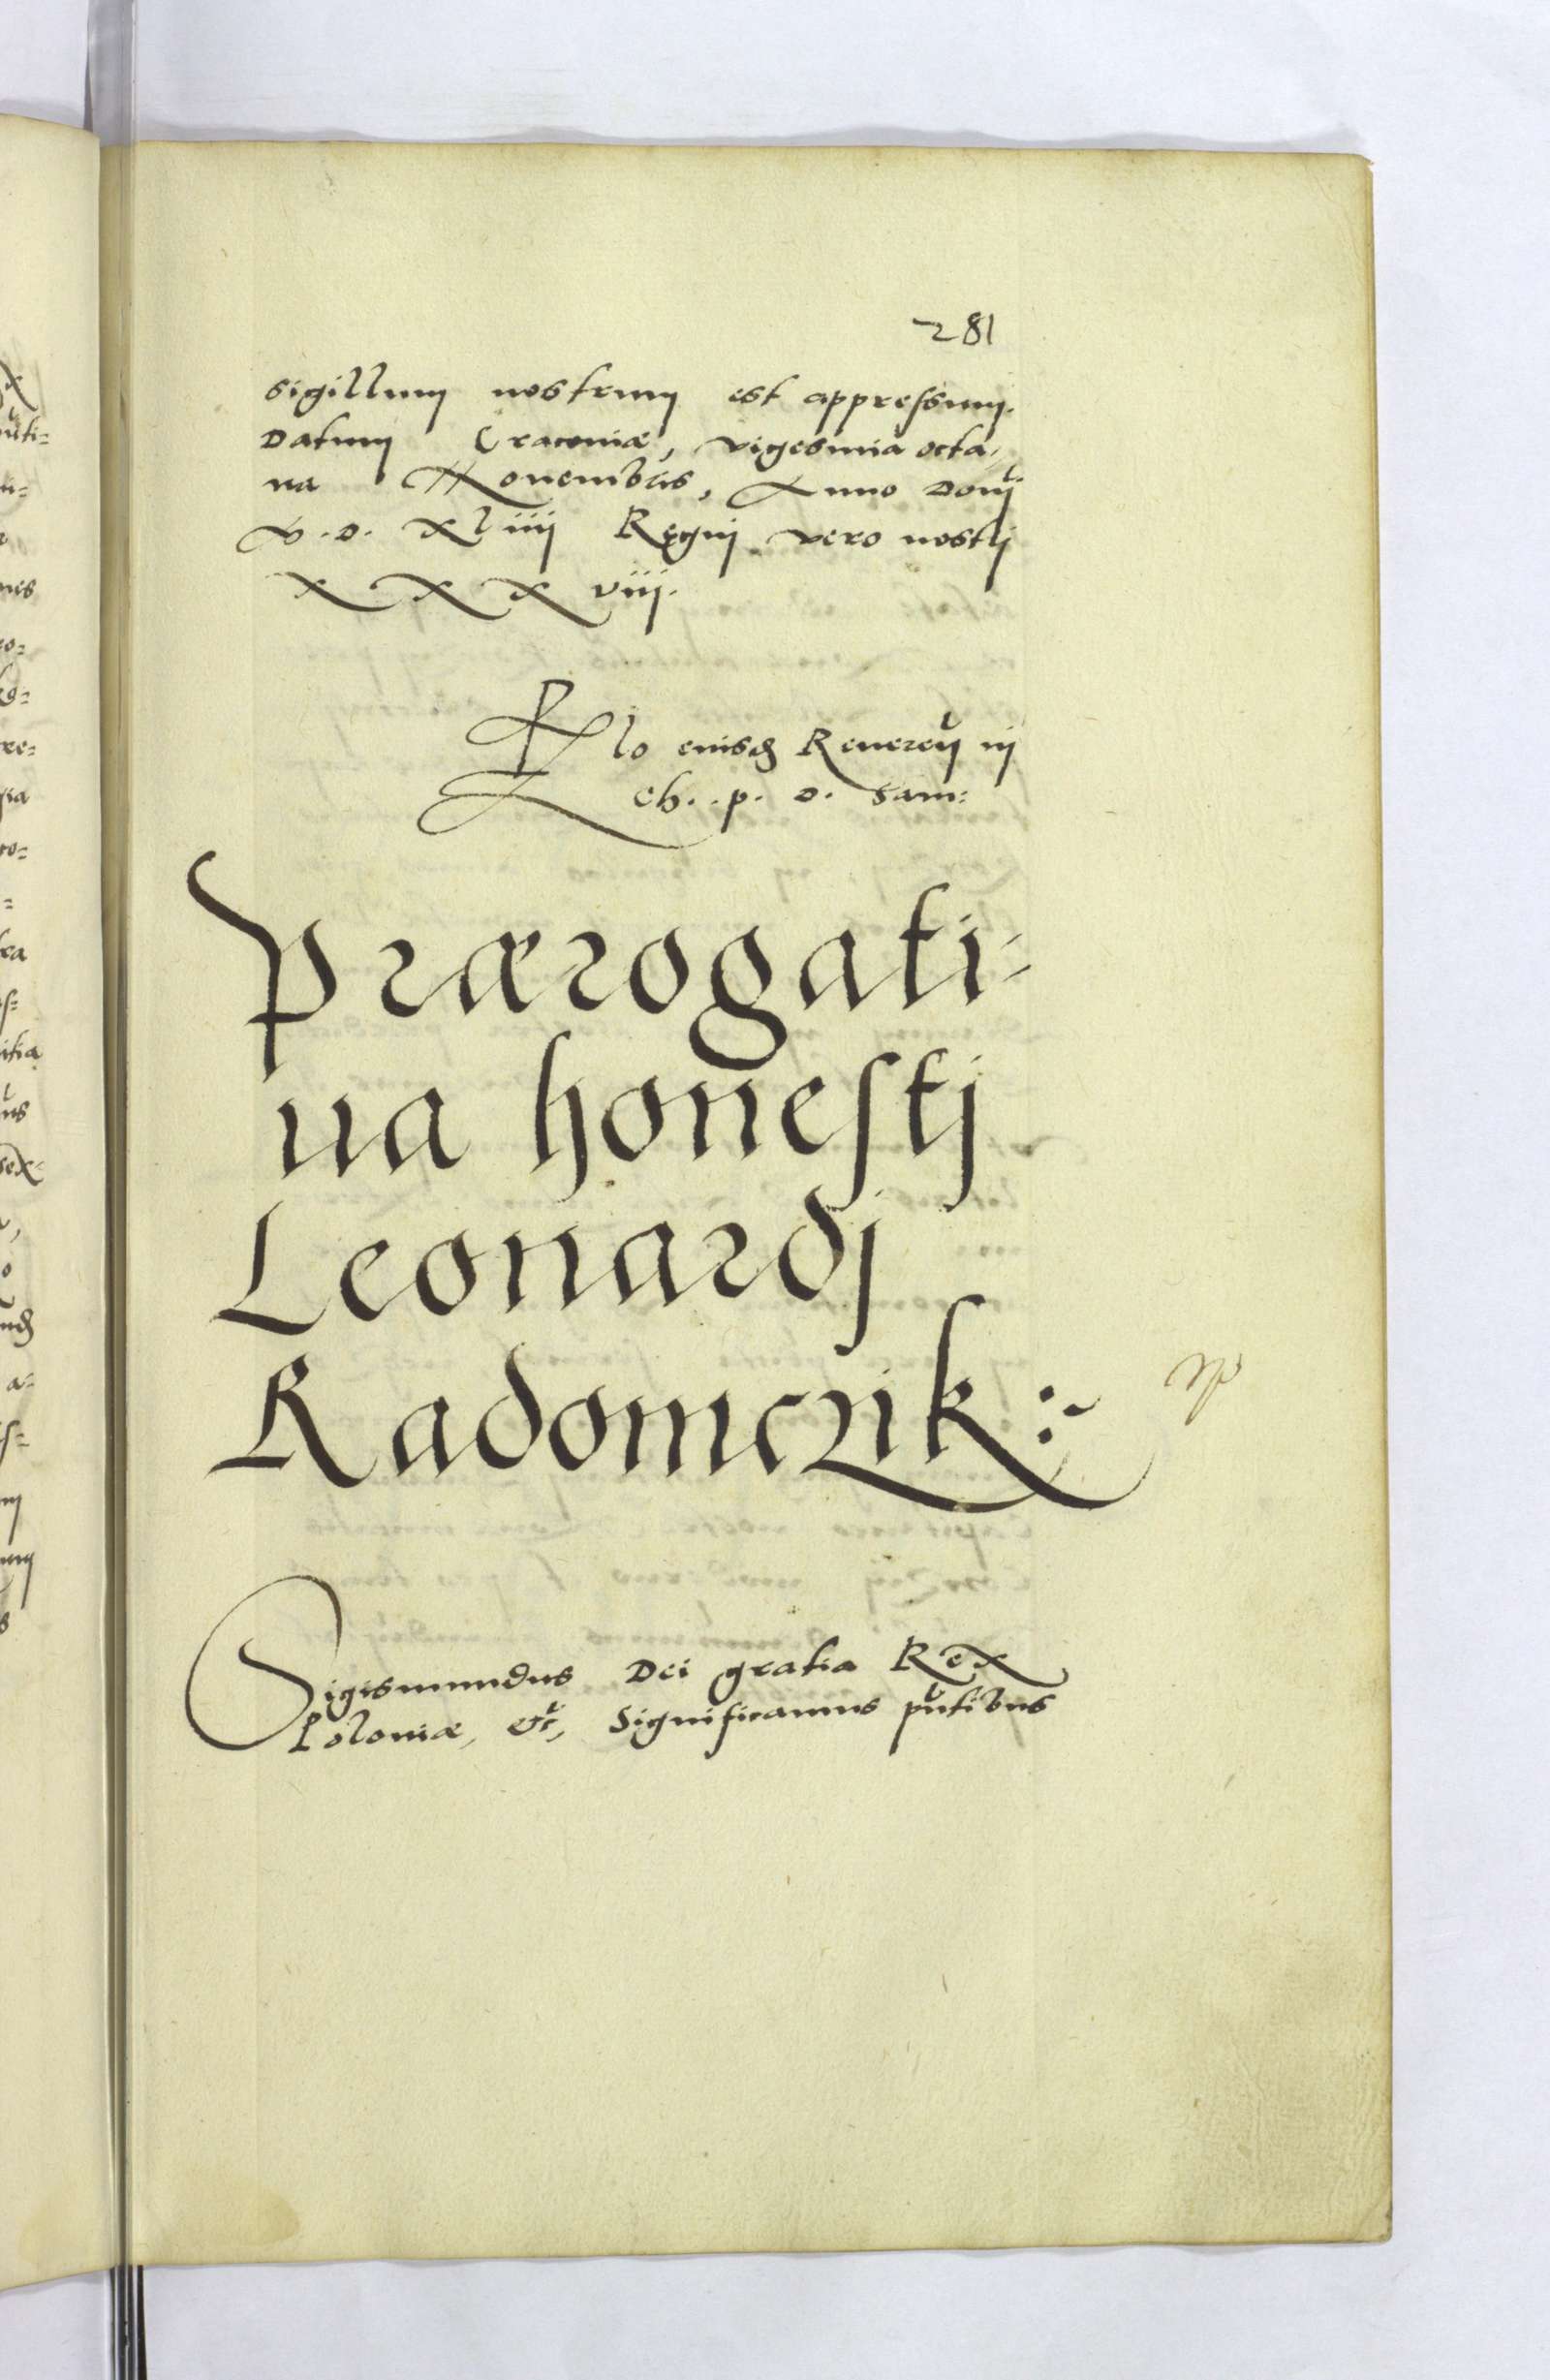 281
sigillum nostrum est appressum.
Datum Cracoviæ, vigesima octa,
ua Nouembris, Anno Domj
D. XLiiij Regnj vero nostrj
XXX viij.
Rlo eiusd Reueren̄ ij
ch. p. D. Sam:
Prærogati-
ua honestj
Leonardj
Radomczik :~
Sigismundus Dei gratia Rex
Poloniæ, &c, Significamus pn̄tibus